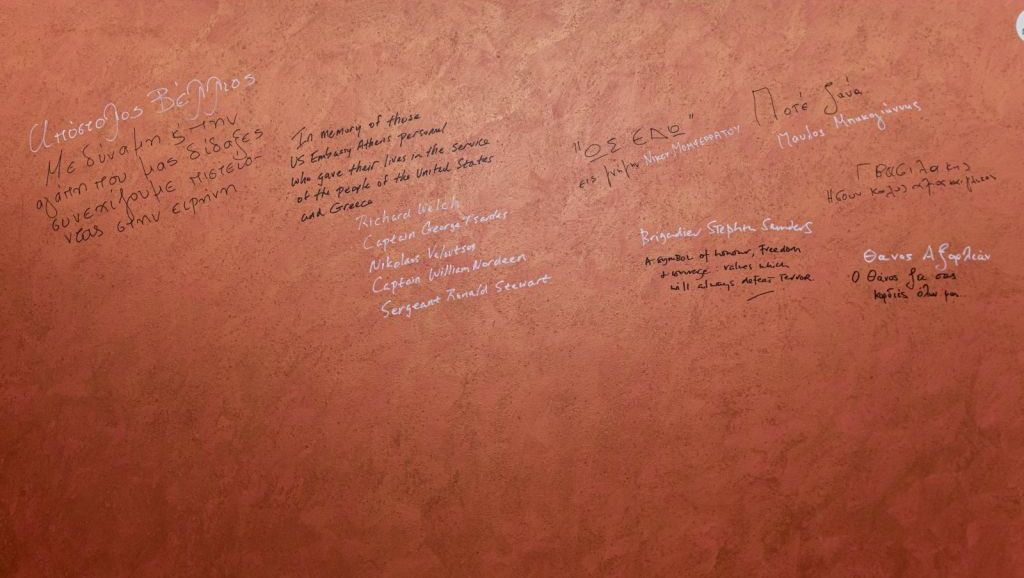 Απόστολος Βέλλιος
Με δύναμη & την
αγάπη που μας δίδαξες
συνεχίζουμε πιστεύο-
ντας στην ειρήνη
In memory of those
US Embassy Athens personal
who gave their lives in the service
of the people of the United States
and Greece
Richard Welch
Captain George Tsantes
Nikolaos Veloutsos
Captain William Nordeen
Sergeant Ronald Stewart
"ΩΣ ΕΔΩ"
εις μνήμην ΝΙΚΟΥ ΜΟΜΦΕΡΡΑΤΟΥ
Ποτέ ξανά
Παυλος Μπακογιάννης
Brigadier Stephen Saunders
A symbol of honour, Freedom
+ courage: values which
will always defeat terror
Ήσουν καλός
Θανος Αξαρλιάν
Ο Θάνος ζει στις
καρδιές όλων μας..